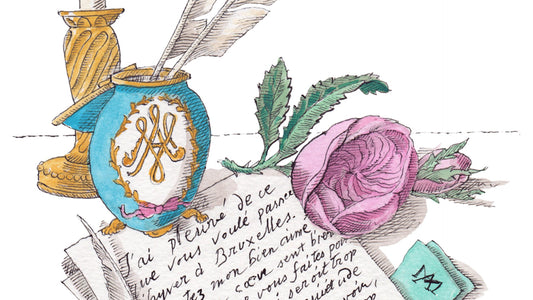 J'ai de ce
que vous voulé passer
hyver à Bruxelles.
tez mon bien aimé
cœur sent bien
e vous faites pour
seroit trop
voir,